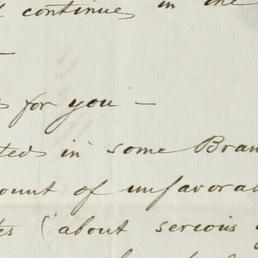 continue in the
—
for you —
in some Bran
ount of unfavora
(about serious